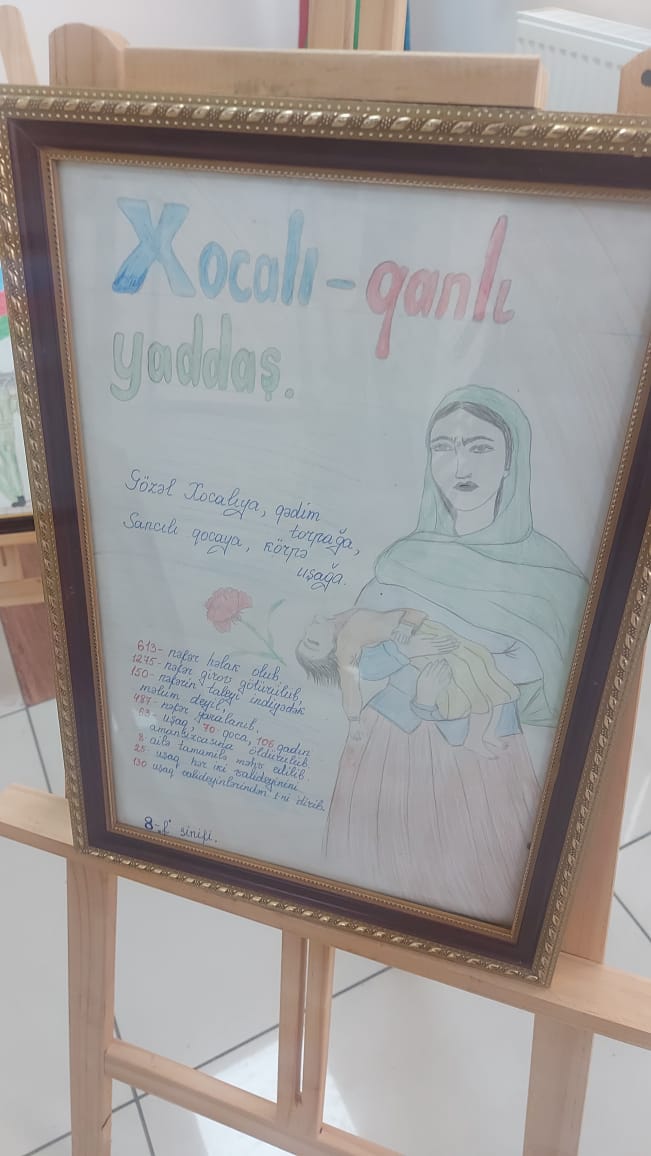 Xocalı - qanlı
yaddaş.
Gözəl Xocalıya, qədim
torpağa,
Sancılı qocaya, körpə
uşağa.
613 - nəfər həlak olub,
1275 - nəfər girov götürülüb,
150 - nəfərin taleyi indiyədək
məlum deyil,
487 - nəfər yaralanıb.
63 - uşaq, 70 qoca, 106 qadın
amansızcasına öldürülüb.
8 ailə tamamilə məhv edilib.
25 uşaq hər iki valideynini
130 uşaq valideyinlərindən 1-ni itirib.
8 sinifi.